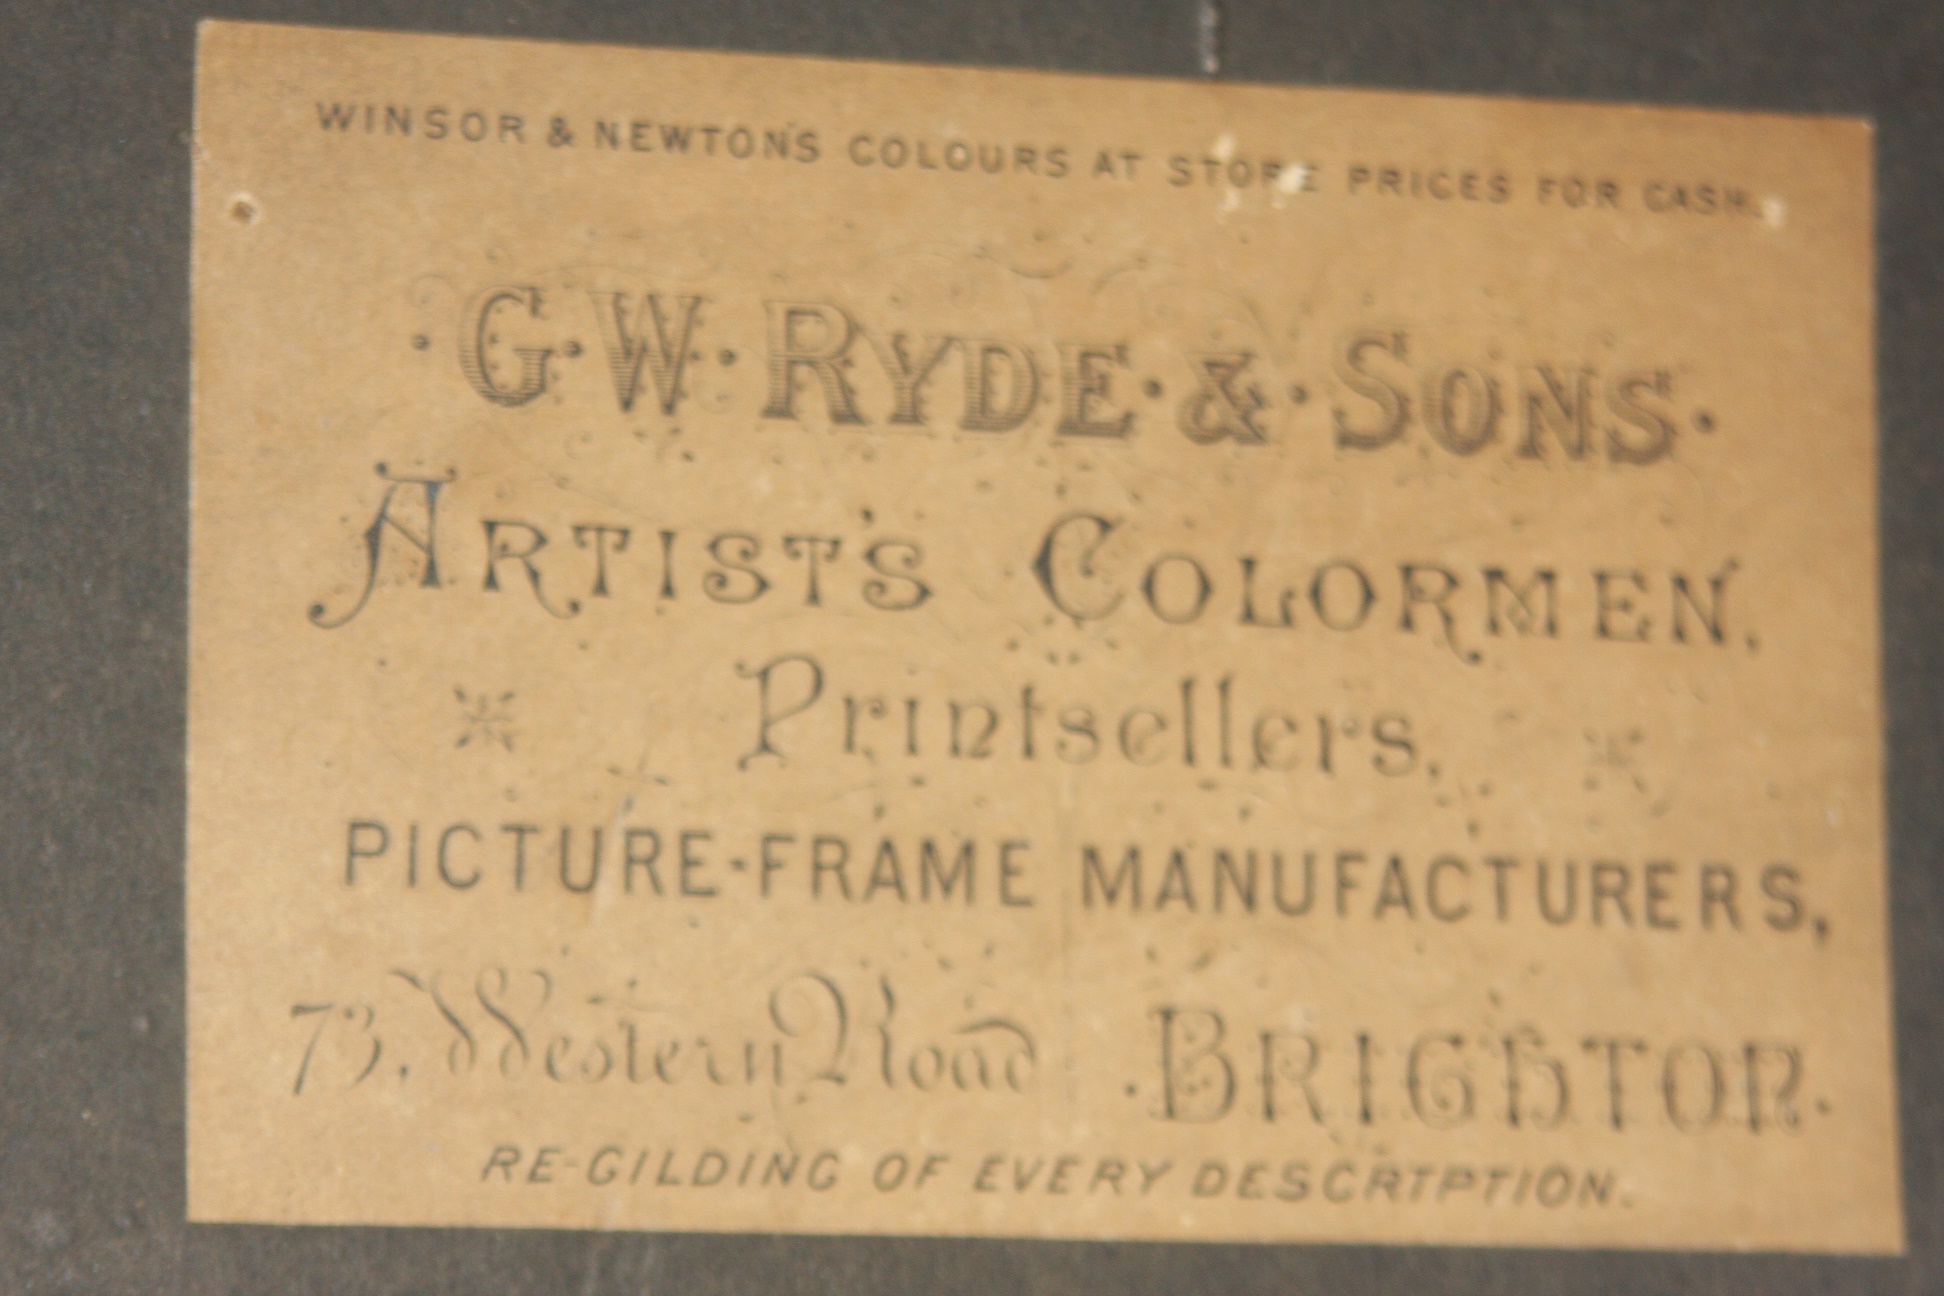 WINSOR & NEWTON'S COLOURS AT STORE PRICES FOR CASH.
· G·W· RYDE·&·SONS·
ARTIST'S COLORMEN,
Printsellers,
PICTURE-FRAME MANUFACTURERS,
73, Western Road · BRIGHTON.
RE-GILDING OF EVERY DESCRIPTION.